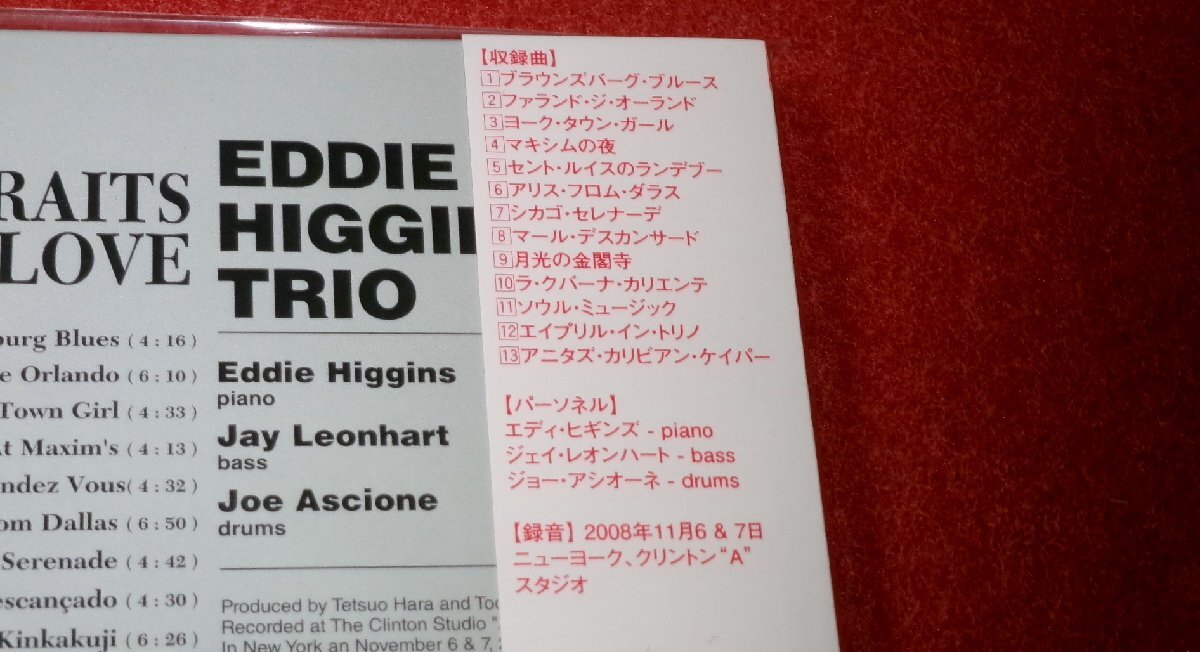 RAITS
LOVE
ourg Blues (4:16)
e Orlando (6:10)
Town Girl (4:33)
At Maxim's (4:13)
ndez Vous(4:32)
om Dallas (6:50)
Serenade (4:42)
escançado (4:30)
Kinkakuji (6:26)
EDDIE
HIGGI
TRIO
Eddie Higgins
piano
Jay Leonhart
bass
Joe Ascione
drums
Produced by Tetsuo Hara and Too
Recorded at The Clinton Studio "
In New York an November 6 & 7,
【収録曲】
1 ブラウンズバーグ・ブルース
2 ファランド・ジ・オーランド
3 ヨーク・タウン・ガール
4 マキシムの夜
5 セント・ルイスのランデブー
6 アリス・フロム・ダラス
7 シカゴ・セレナーデ
8 マール・デスカンサード
9 月光の金閣寺
10 ラ・クバーナ・カリエンテ
11 ソウル・ミュージック
12 エイプリル・イン・トリノ
13 アニタズ・カリビアン・ケイパー
【パーソネル】
エディ・ヒギンズ - piano
ジェイ・レオンハート - bass
ジョー・アシオーネ - drums
【録音】2008年11月6 & 7日
ニューヨーク、クリントン“A”
スタジオ